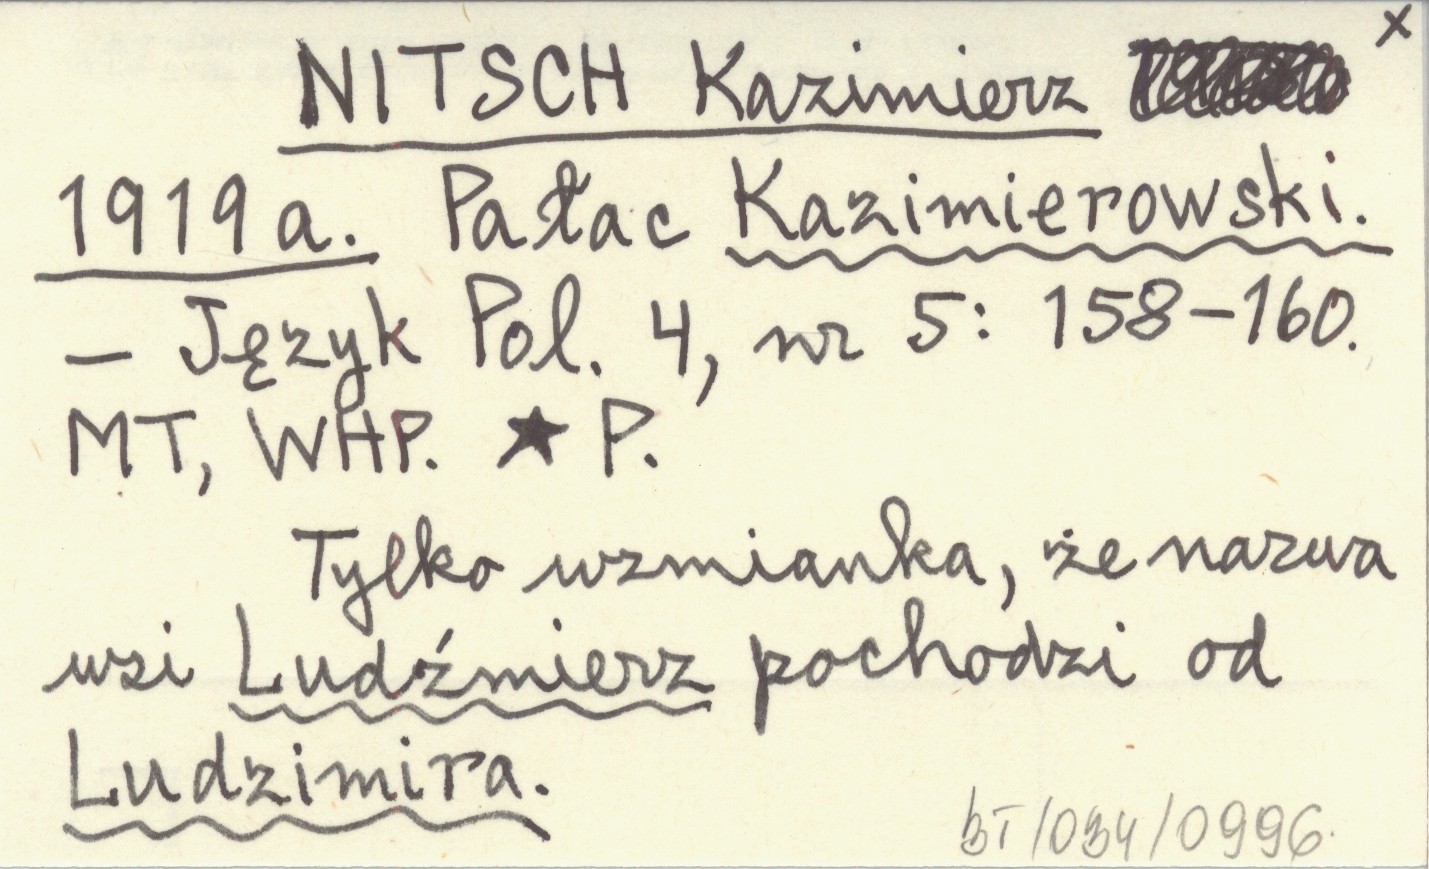 x
NITSCH Kazimierz
1919a. Pałac Kazimierowski.
– Język Pol. 4, nr 5: 158–160.
MT, WHP. ★ P.
Tylko wzmianka, że nazwa
wsi Ludźmierz pochodzi od
Ludzimira.
BT/034/0996.